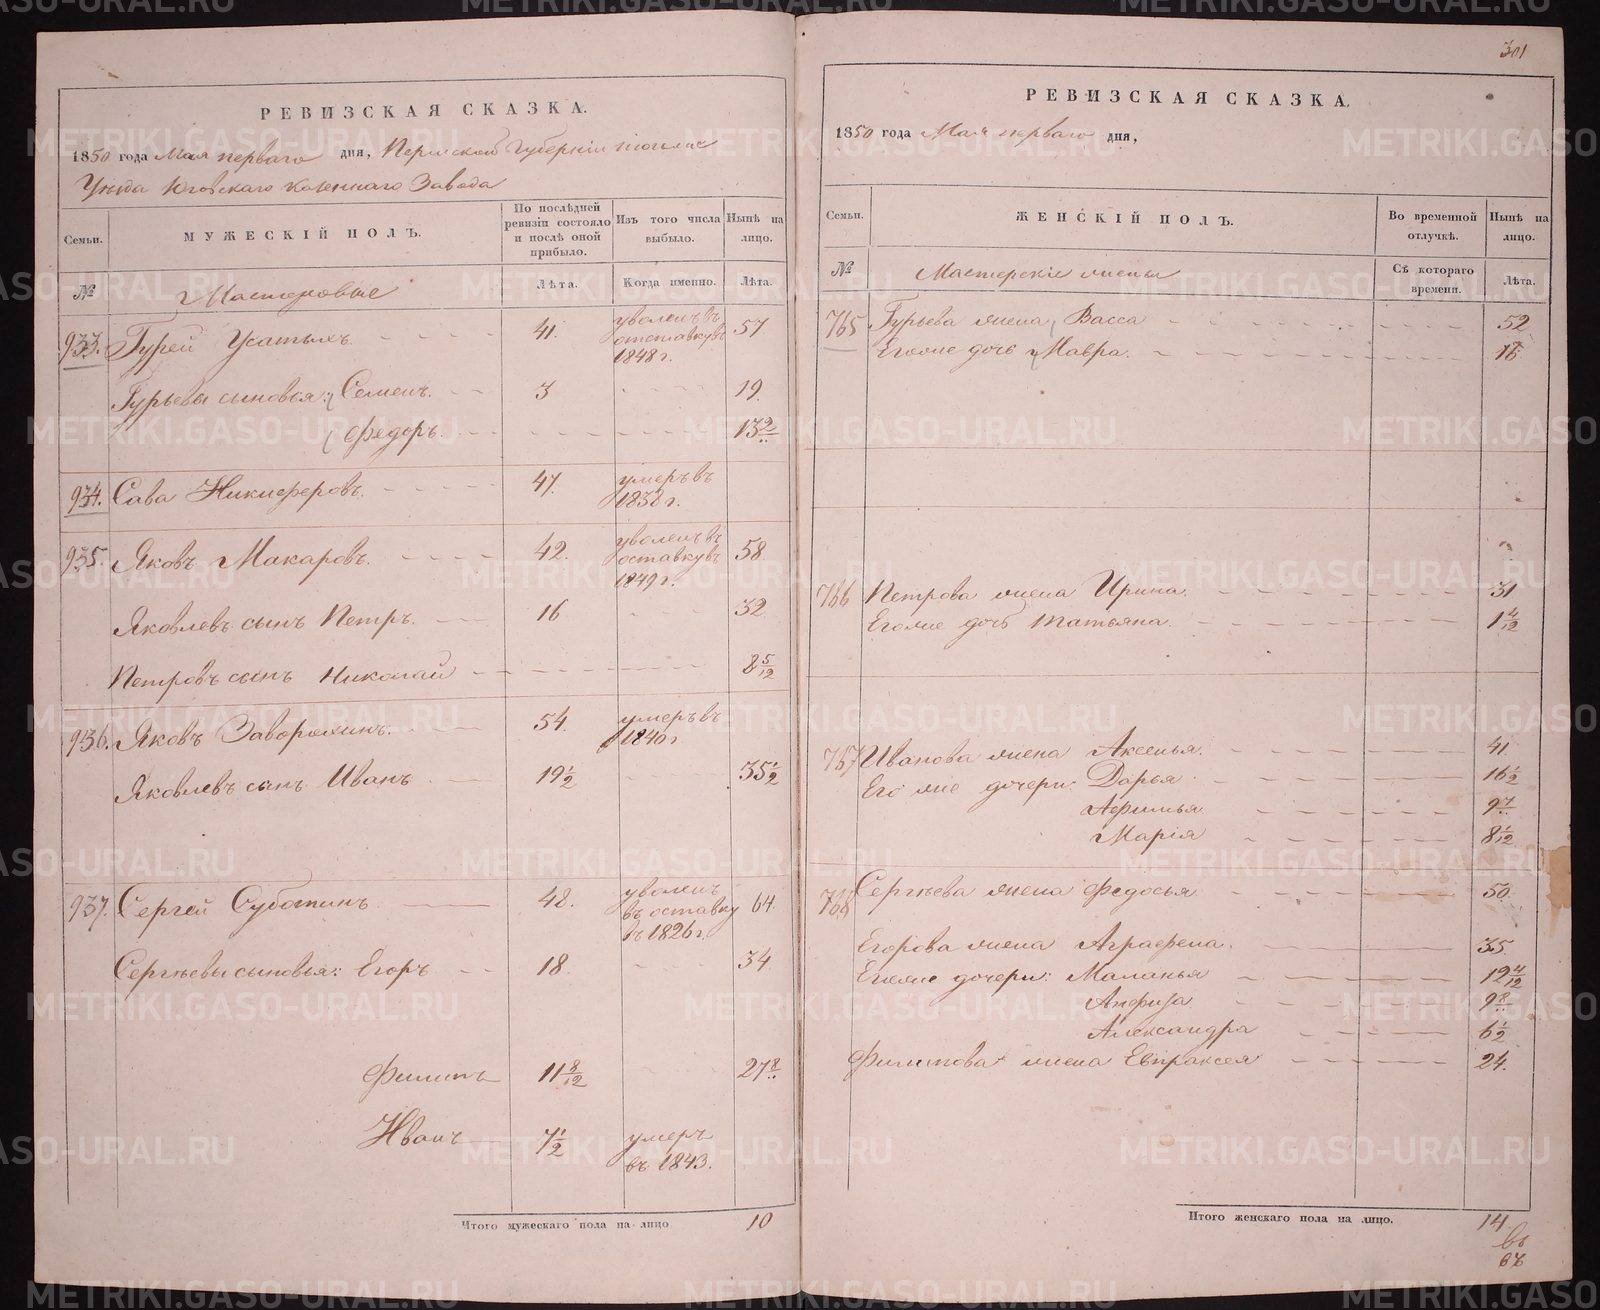 РЕВИЗСКАЯ СКАЗКА.
1850 года Мая перваго дня, Пермской Губернiи
Уѣзда Юговскаго Казеннаго Завода
Семьи.
МУЖЕСКIЙ ПОЛЪ.
По послѣдней ревизiи состояло и послѣ оной прибыло.
Изъ того числа выбыло.
Нынѣ на лицо.
№
Мастеровые
Лѣта.
Когда именно.
Лѣта.
933. Гурей Усатыхъ. 41. уволенъ въ отставку въ 1848 г. 57
Гурьевы сыновья: Семенъ. 3 19.
Федоръ. 13 9/..
934. Сава Никиферовъ. 47. умеръ въ 1838 г.
935. Яковъ Макаровъ. 42. уволенъ въ оставку въ 1849 г. 58
Яковлевъ сынъ Петръ. 16 32
Петровъ сынъ Николай 8 5/12
936. Яковъ Заворохинъ. 54. умеръ въ 1840 г
Яковлевъ сынъ Иванъ 19 1/2 35 1/2
937. Сергей Суботинъ 48. уволенъ въ оставку въ 1826 г. 64
Сергѣевы сыновья: Егоръ 18 34
Филипъ 11 8/12 27 8/..
Иванъ 7 1/2 умеръ въ 1843.
Итого мужескаго пола на лицо 10
301
РЕВИЗСКАЯ СКАЗКА.
1850 года Мая перваго дня,
Семьи.
ЖЕНСКIЙ ПОЛЪ.
Во временной отлучкѣ.
Нынѣ на лицо.
№
Мастерскiе жены
Съ котораго времени.
Лѣта.
765 Гурьева жена Васса 52
Егоже дочь Мавра. 17
766 Петрова жена Ирина. 31
Егоже дочь Татьяна. 1 4/12
767 Иванова жена Аксенья. 41
Его же дочери: Дарья 16 1/2
Афимья 9 7/..
Марiя 8 1/12
768 Сергѣева жена Федосья 50
Егорова жена Аграфена. 35
Егоже дочери: Маланья 12 4/12
Анфиза 9 8/..
Александра 6 1/2
Филипова жена Евпраксея 24.
Итого женскаго пола на лицо. 14
METRIKI.GASO-URAL.RU